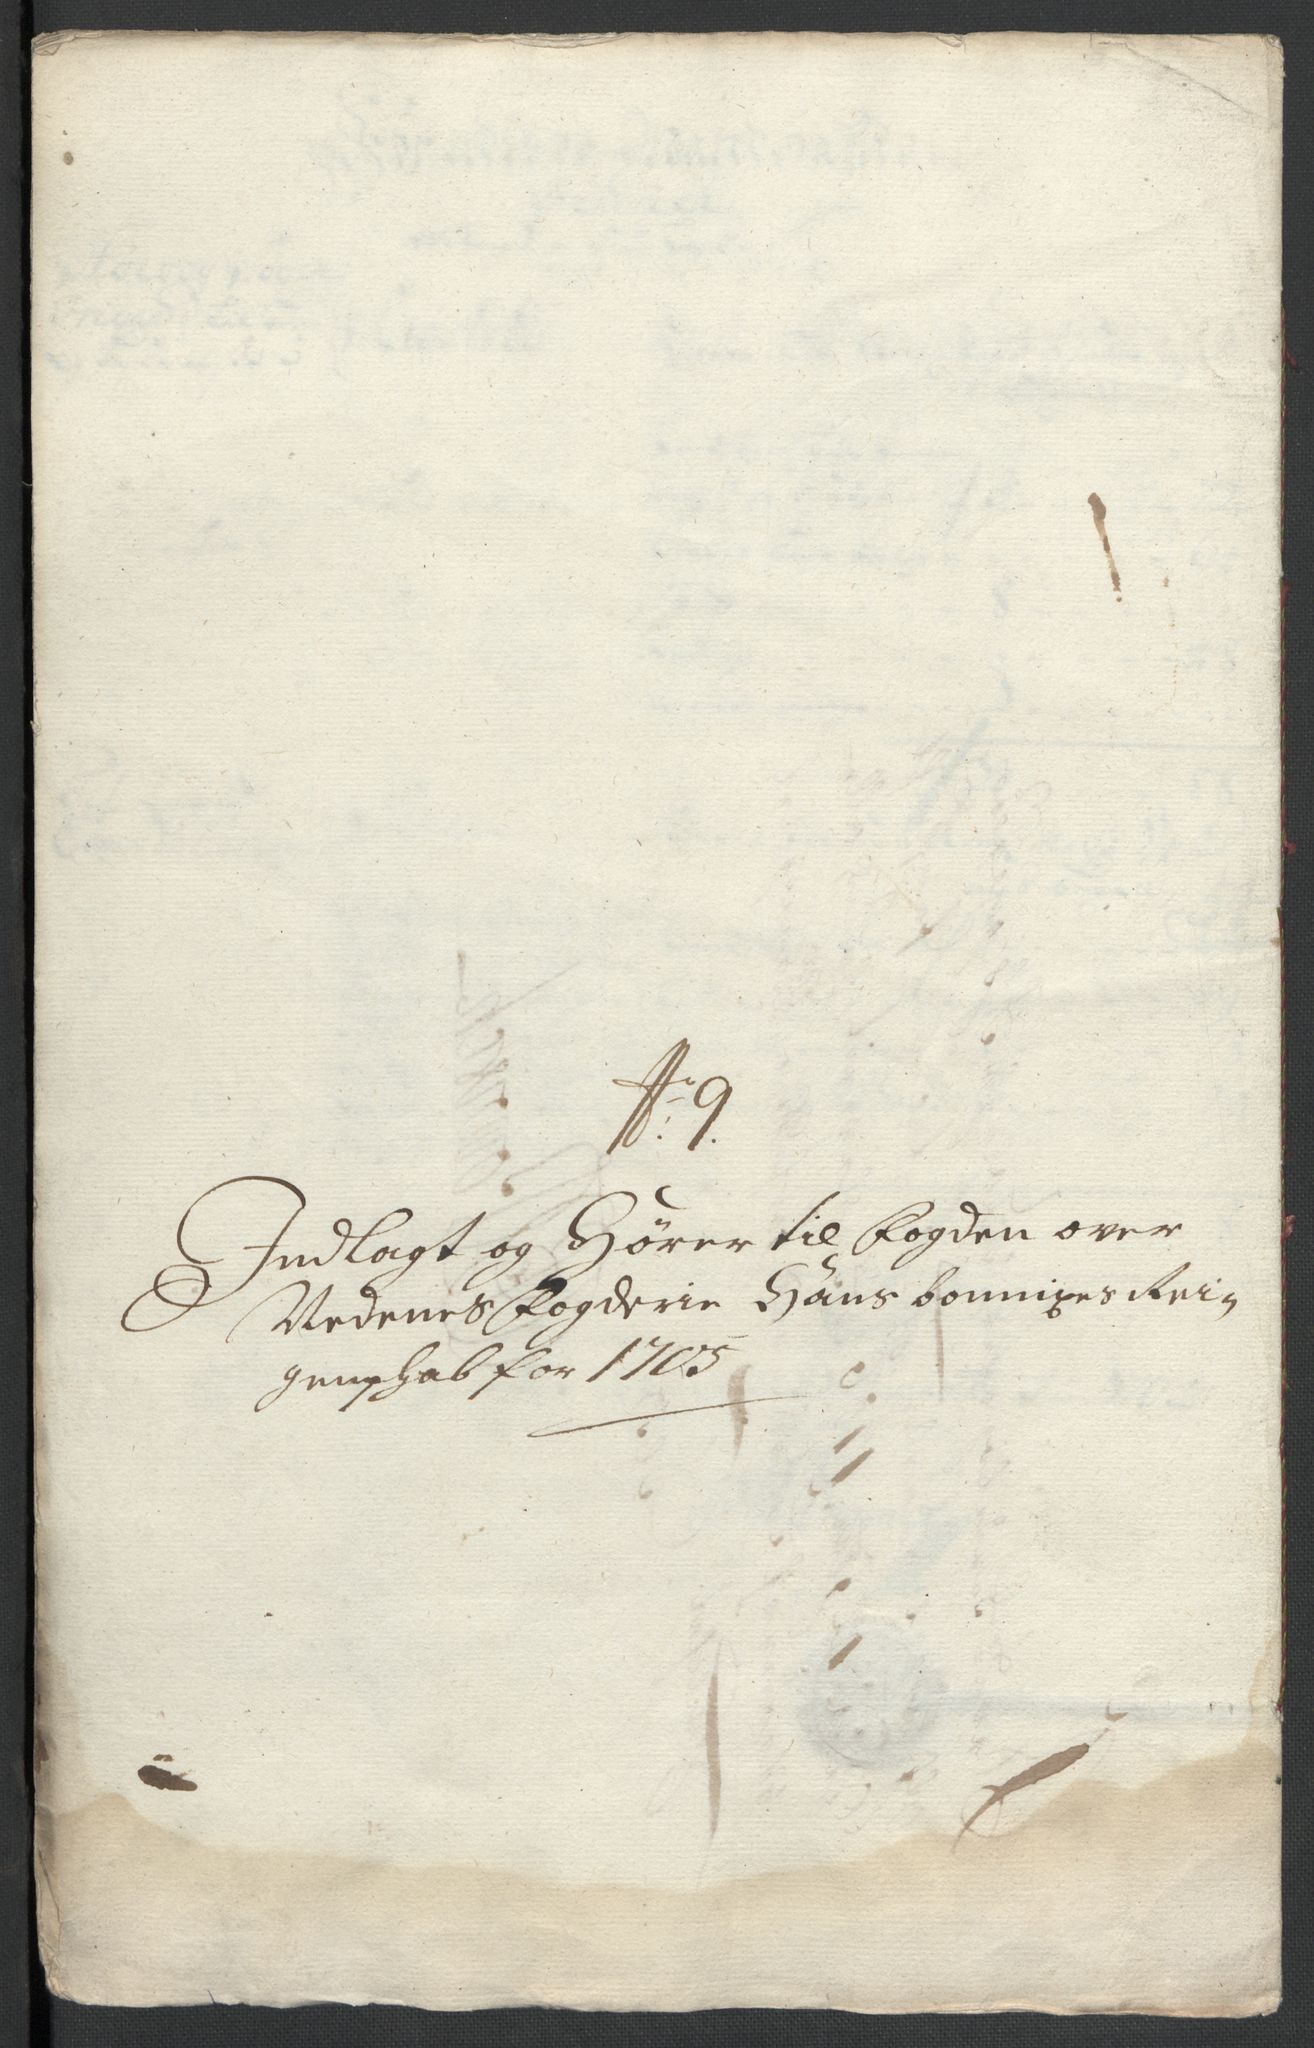 No: 9.
Indlagt og Hörer til Fogden over
Nedenes Fogderie Hans bonnixes Rei-
genschab for 1705